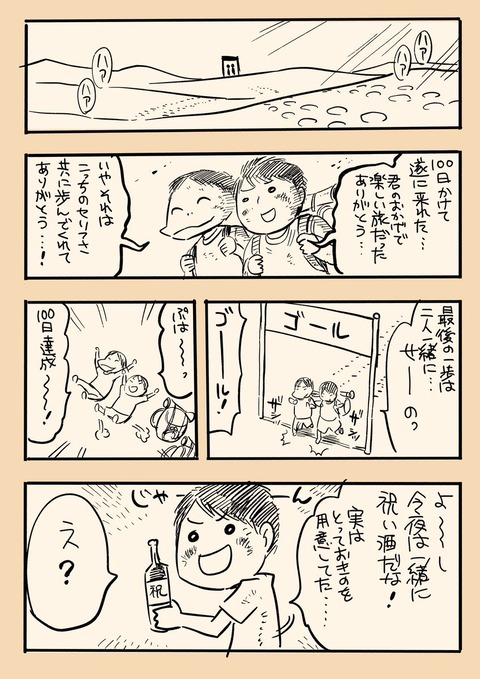 ハア
ハア
ハア
100日かけて
遂に来れた…
君のおかげで
楽しい旅だった
ありがとう…
いやそれは
こっちのセリフさ
共に歩んでくれて
ありがとう…！
最後の一歩は
二人一緒に…
せーのっ
ゴール
ザッ
ザッ
ゴール！
ぷは〜〜っ
100日達成
〜〜！
よ〜〜し
今夜は一緒に
祝い酒だな！
実は
とっておきのを
用意してた…
じゃーん
祝
え？